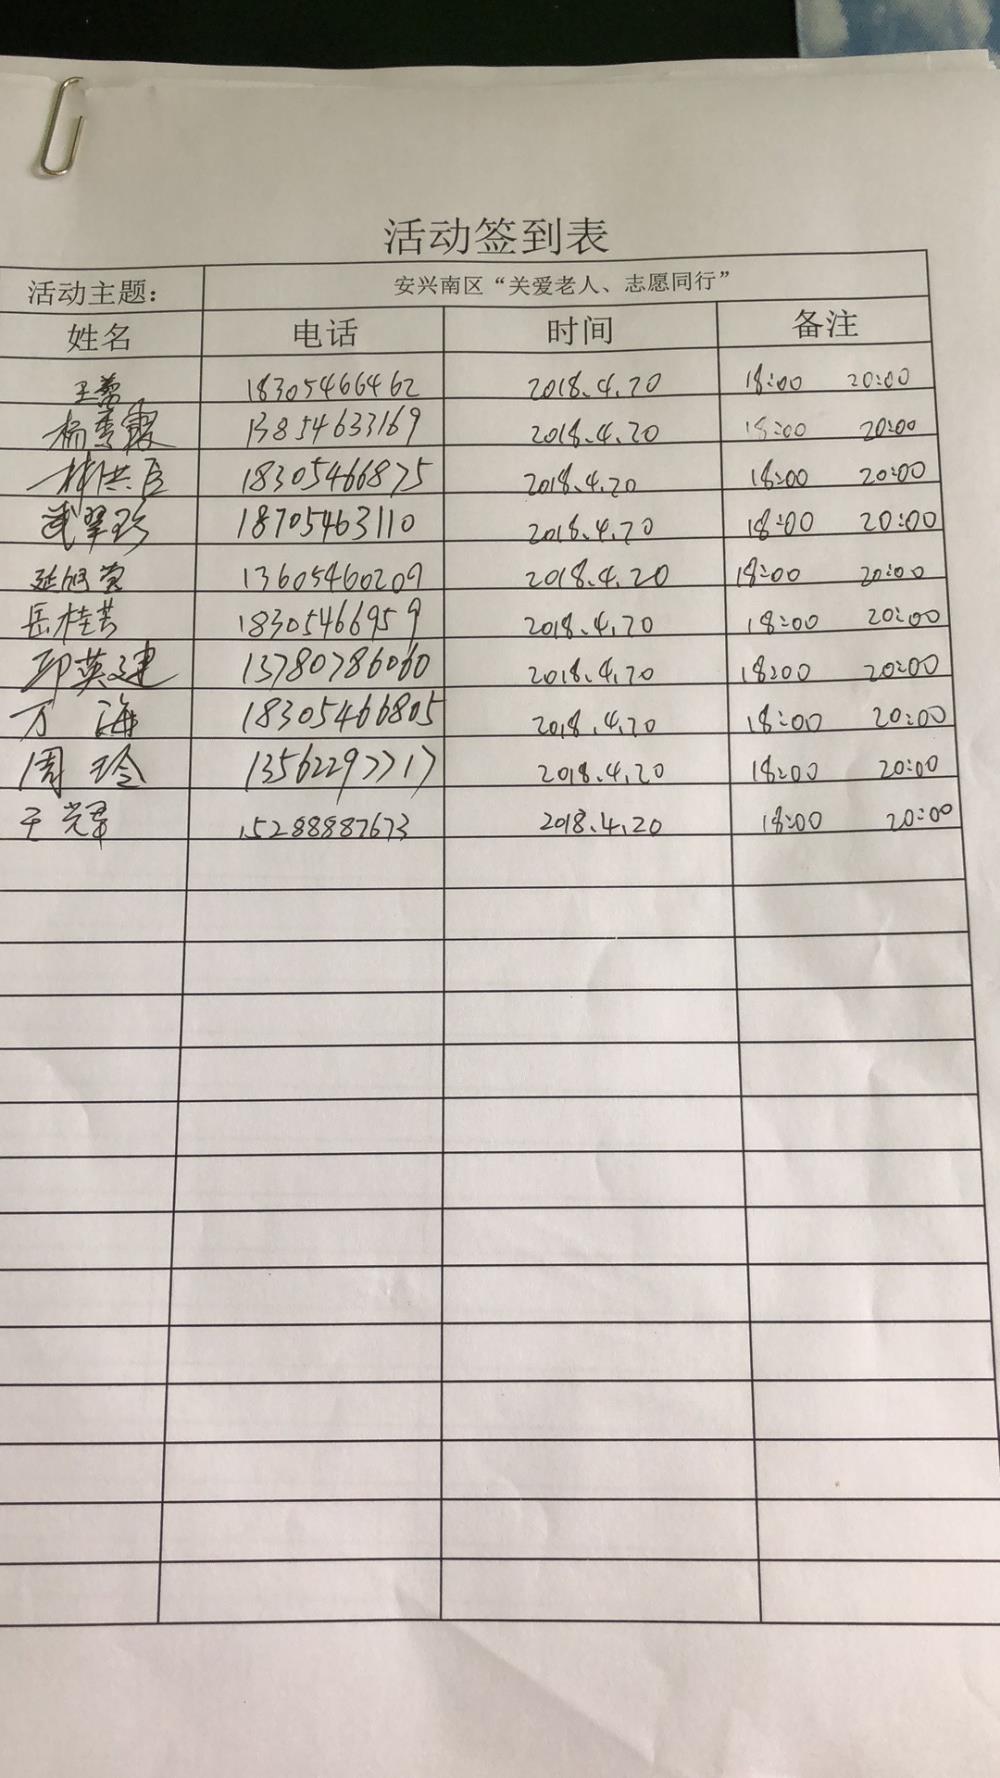 活动签到表
活动主题： 安兴南区“关爱老人、志愿同行”
姓名 电话 时间 备注
王蕾 18305466462 2018.4.20 18:00 20:00
杨秀霞 13854633169 2018.4.20 18:00 20:00
林洪臣 18305466875 2018.4.20 18:00 20:00
武翠珍 18705463110 2018.4.20 18:00 20:00
延旭莹 13605460209 2018.4.20 18:00 20:00
岳桂芳 18305466959 2018.4.20 18:00 20:00
邱英建 13780786060 2018.4.20 18:00 20:00
万海 18305466805 2018.4.20 18:00 20:00
周玲 13562297717 2018.4.20 18:00 20:00
于光军 15288887673 2018.4.20 18:00 20:00